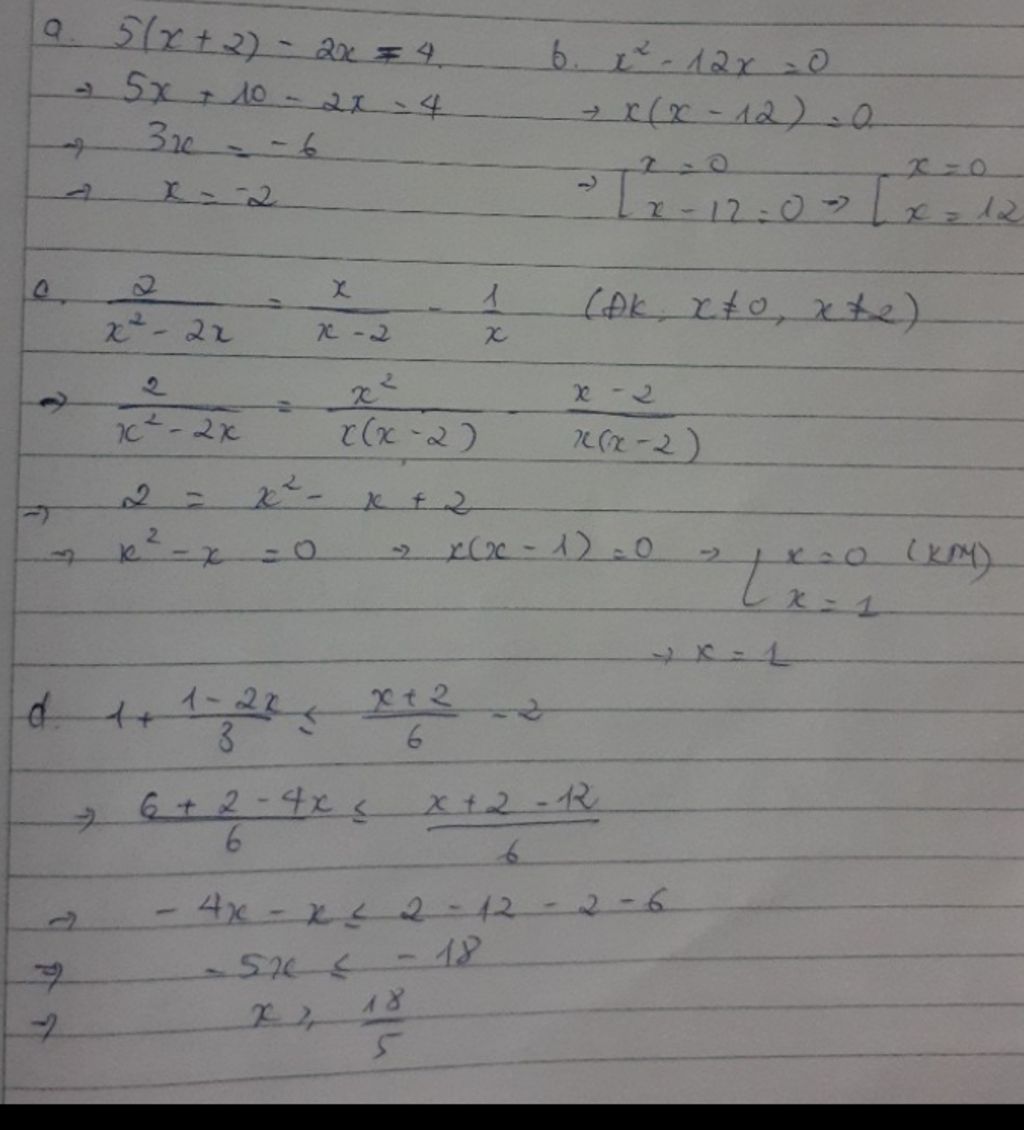 a. 5(x + 2) - 2x = 4
→ 5x + 10 - 2x = 4
→ 3x = -6
→ x = -2
b. x² - 12x = 0
→ x(x - 12) = 0
→ [ x = 0
x - 12 = 0 → [ x = 0
x = 12
c. 2/(x² - 2x) = x/(x - 2) - 1/x (ĐK, x ≠ 0, x ≠ 2)
→ 2/(x² - 2x) = x²/(x(x - 2)) - (x - 2)/(x(x - 2))
→ 2 = x² - x + 2
→ x² - x = 0 → x(x - 1) = 0 → [ x = 0 (KTM)
x = 1
→ x = 1
d. 1 + (1 - 2x)/3 ≤ (x + 2)/6 - 2
→ (6 + 2 - 4x)/6 ≤ (x + 2 - 12)/6
→ - 4x - x ≤ 2 - 12 - 2 - 6
⇒ - 5x ≤ - 18
⇒ x ≥ 18/5